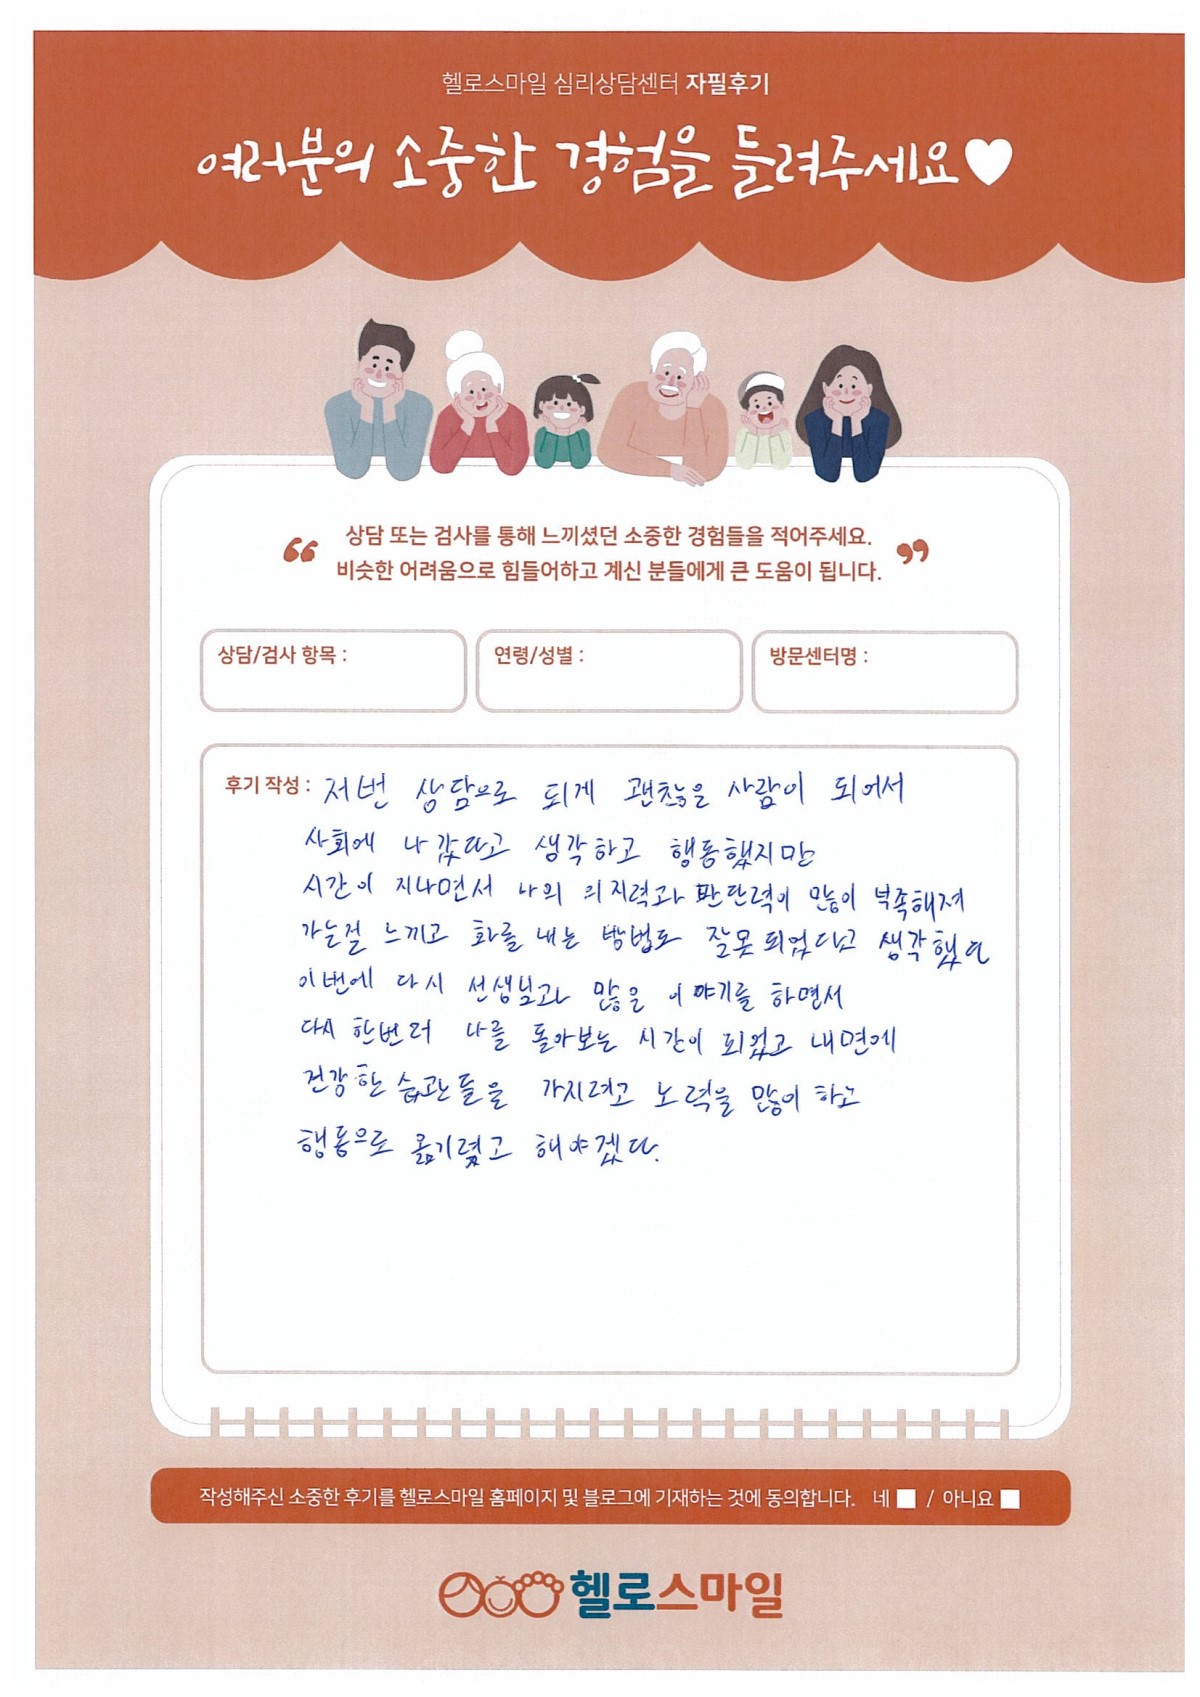 헬로스마일 심리상담센터 자필후기
여러분의 소중한 경험을 들려주세요♥
“ 상담 또는 검사를 통해 느끼셨던 소중한 경험들을 적어주세요. ”
비슷한 어려움으로 힘들어하고 계신 분들에게 큰 도움이 됩니다.
상담/검사 항목 : 연령/성별 : 방문센터명 :
후기 작성 : 저번 상담으로 되게 괜찮을 사람이 되어서
사회에 나갔다고 생각하고 행동했지만
시간이 지나면서 나의 의지력과 판단력이 많이 부족해져
가는걸 느끼고 화를 내는 방법도 잘못되었다고 생각했다
이번에 다시 선생님과 많은 이야기를 하면서
다시 한번더 나를 돌아보는 시간이 되었고 내면에
건강한 습관들을 가지려고 노력을 많이 하고
행동으로 옮기렸고 해야겠다.
작성해주신 소중한 후기를 헬로스마일 홈페이지 및 블로그에 기재하는 것에 동의합니다. 네 / 아니요
헬로스마일